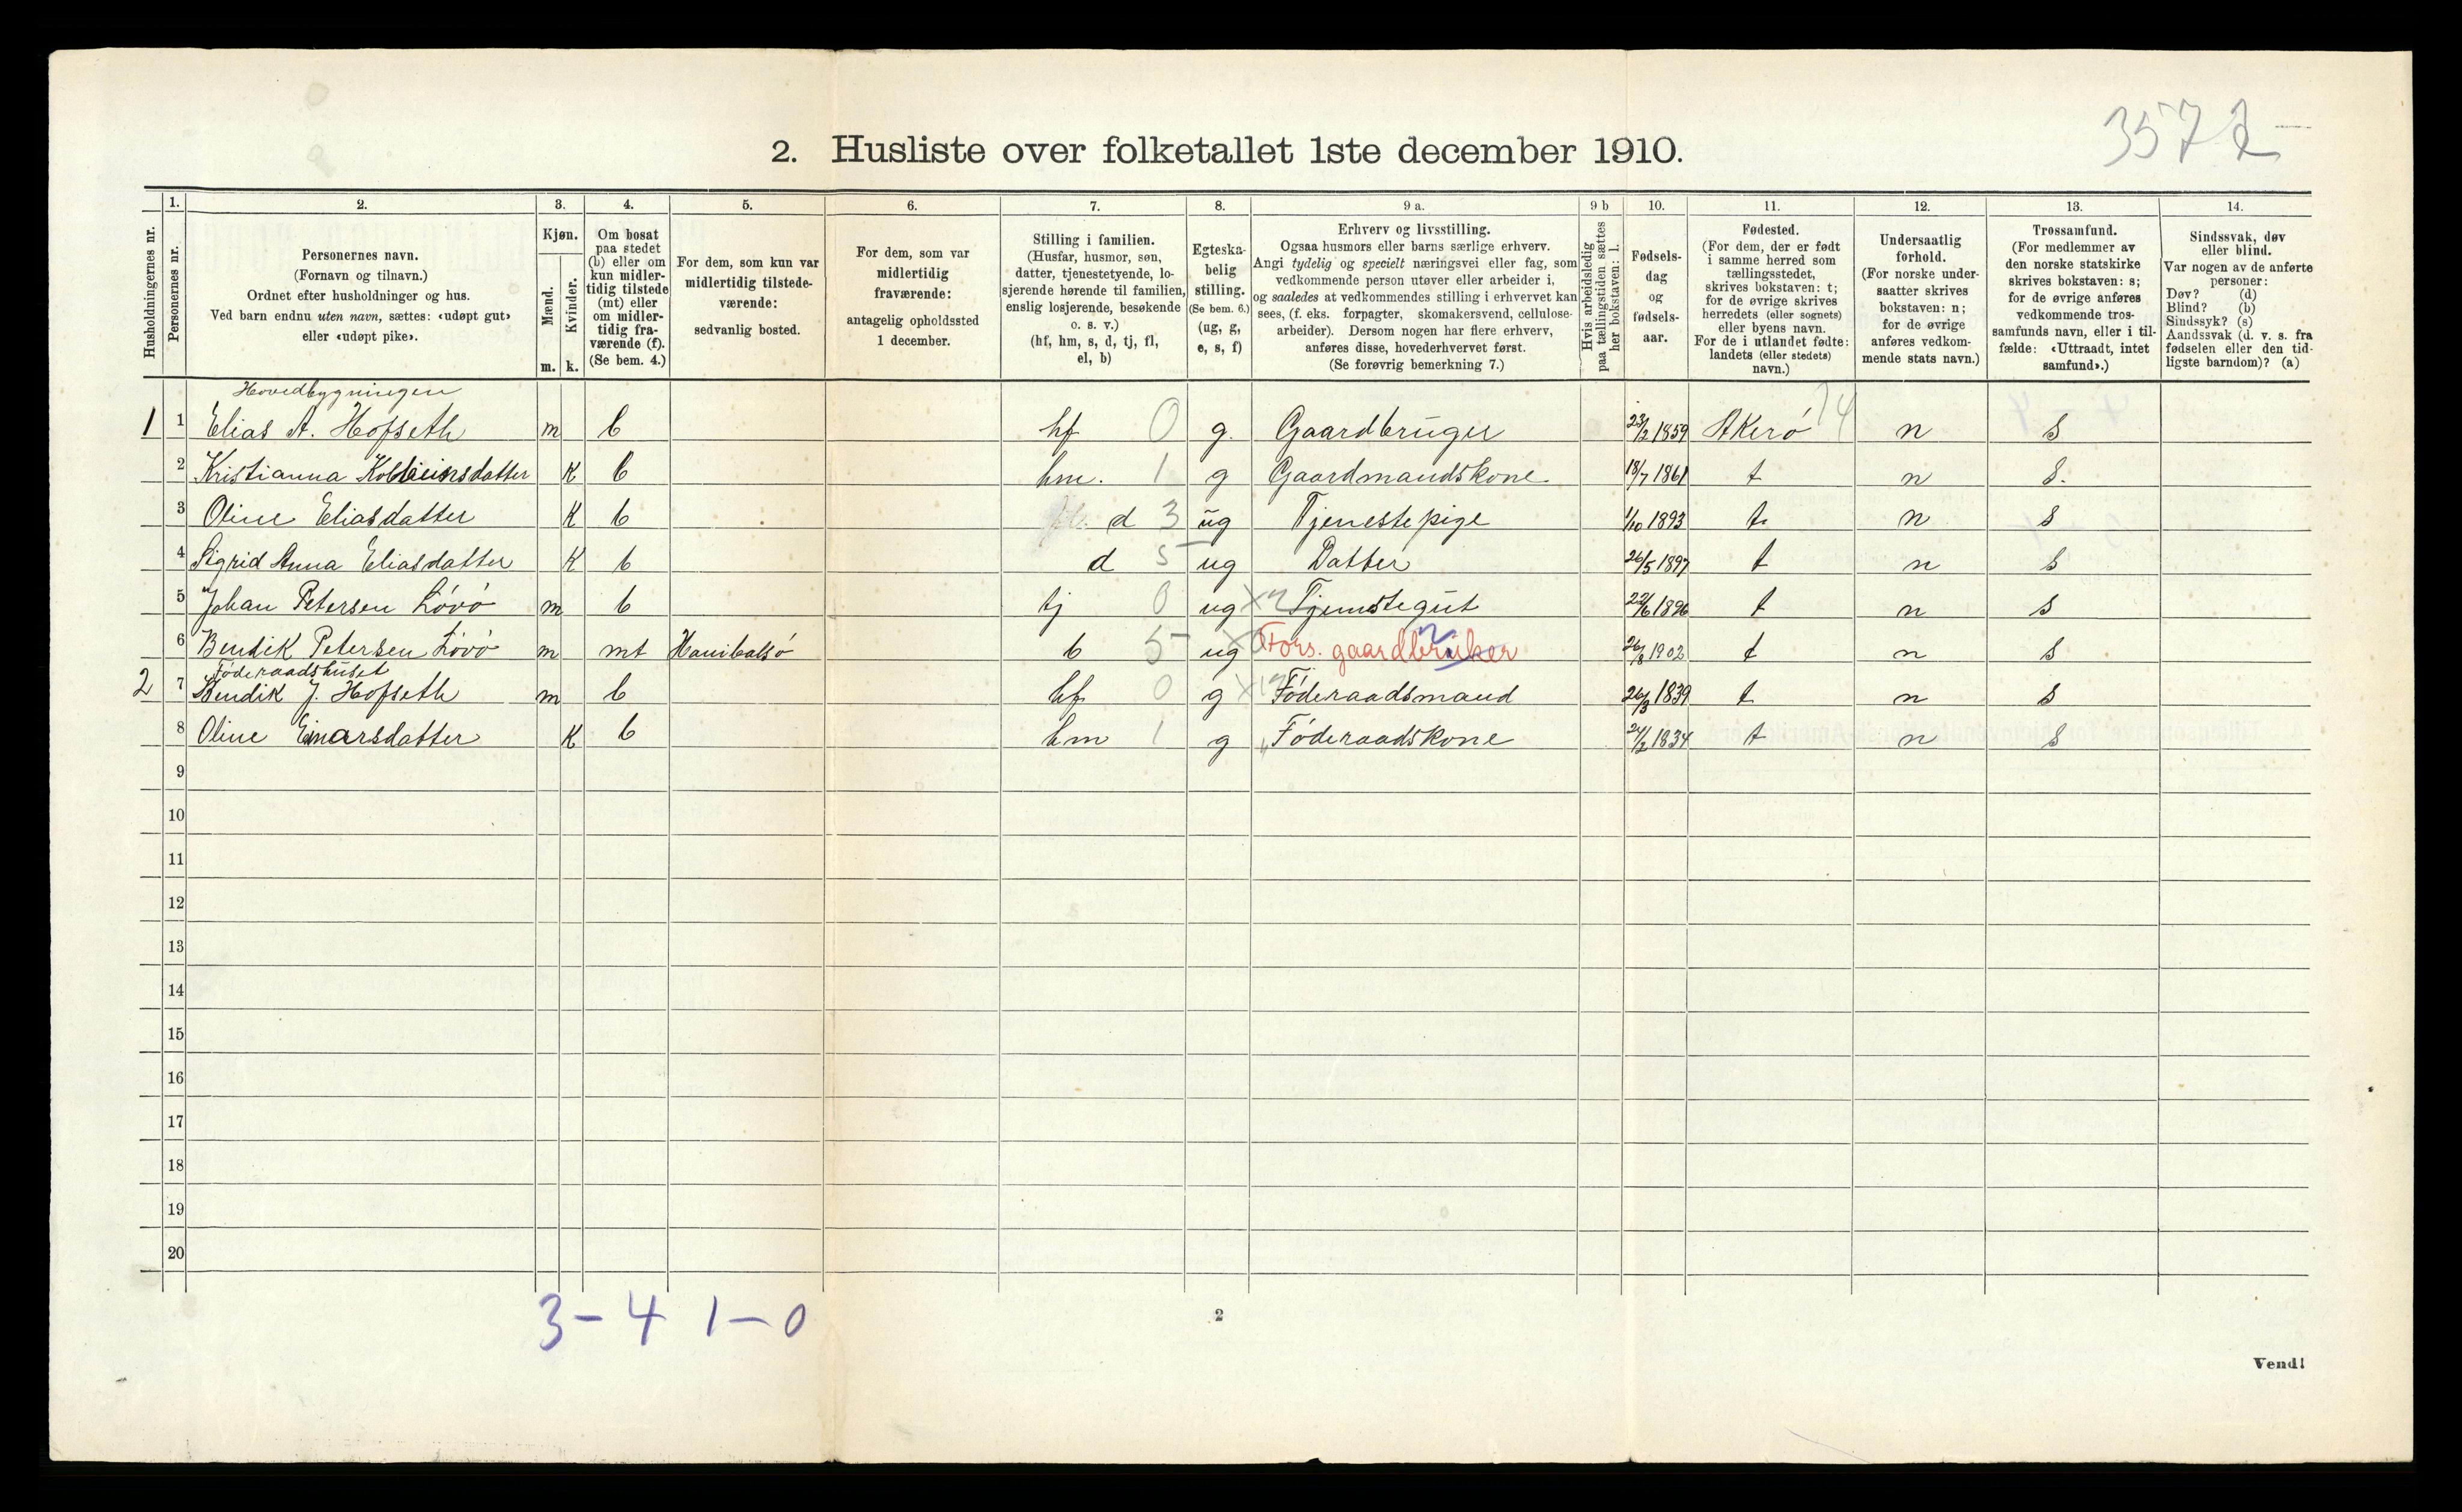 3572
2. Husliste over folketallet 1ste december 1910.
Husholdningernes nr.
1. Personernes nr.
2. Personernes navn.
(Fornavn og tilnavn.)
Ordnet efter husholdninger og hus.
Ved barn endnu uten navn, sættes: «udøpt gut»
eller «udøpt pike».
3. Kjøn.
Mænd. Kvinder.
m. k.
4. Om bosat
paa stedet
(b) eller om
kun midler-
tidig tilstede
(mt) eller
om midler-
tidig fra-
værende (f).
(Se bem. 4.)
5. For dem, som kun var
midlertidig tilstede-
værende:
sedvanlig bosted.
6. For dem, som var
midlertidig
fraværende:
antagelig opholdssted
1 december.
7. Stilling i familien.
(Husfar, husmor, søn,
datter, tjenestetyende, lo-
sjerende hørende til familien,
enslig losjerende, besøkende
o. s. v.)
(hf, hm, s, d, tj, fl,
el, b)
8. Egteska-
belig
stilling.
(Se bem. 6.)
(ug, g,
e, s, f)
9 a. Erhverv og livsstilling.
Ogsaa husmors eller barns særlige erhverv.
Angi tydelig og specielt næringsvei eller fag, som
vedkommende person utøver eller arbeider i,
og saaledes at vedkommendes stilling i erhvervet kan
sees, (f. eks. forpagter, skomakersvend, cellulose-
arbeider). Dersom nogen har flere erhverv,
anføres disse, hovederhvervet først.
(Se forøvrig bemerkning 7.)
9 b Hvis arbeidsledig
paa tællingstiden sættes
her bokstaven: l.
10. Fødsels-
dag
og
fødsels-
aar.
11. Fødested.
(For dem, der er født
i samme herred som
tællingsstedet,
skrives bokstaven: t;
for de øvrige skrives
herredets (eller sognets)
eller byens navn.
For de i utlandet fødte:
landets (eller stedets)
navn.)
12. Undersaatlig
forhold.
(For norske under-
saatter skrives
bokstaven: n;
for de øvrige
anføres vedkom-
mende stats navn.)
13. Trossamfund.
(For medlemmer av
den norske statskirke
skrives bokstaven: s;
for de øvrige anføres
vedkommende tros-
samfunds navn, eller i til-
fælde: «Uttraadt, intet
samfund».)
14. Sindssvak, døv
eller blind.
Var nogen av de anførte
personer:
Døv? (d)
Blind? (b)
Sindssyk? (s)
Aandssvak (d. v. s. fra
fødselen eller den tid-
ligste barndom)? (a)
Hovedbygningen
1 1 Elias A. Hofseth m b hf 0 g. Gaardbruger 23/2 1859 Akerö 14 n s
2 Kristianna Kolbeinsdatter K b hm. 1 g Gaardmandskone 18/7 1861 t n s.
3 Oline Eliasdatter K b d 3 ug Tjenestepige 1/10 1893 t n s
4 Sigrid Anna Eliasdatter K b d 5 ug Datter 26/5 1897 t n s
5 Johan Petersen Lövö m b tj 0 ug Tjenstegut 22/6 1896 t n s
6 Bendik Petersen Lövö m mt Hanibalsö b 5 ug Fors. gaardbruker 26/8 1902 t n s
Föderaadshuset
2 7 Bendik J. Hofseth m b hf 0 g Föderaadsmand 26/3 1839 t n s
8 Oline Einarsdatter K b hm 1 g Föderaadskone 24/2 1834 t n s
9
10
11
12
13
14
15
16
17
18
19
20
3 - 4 1 - 0
2
Vend!